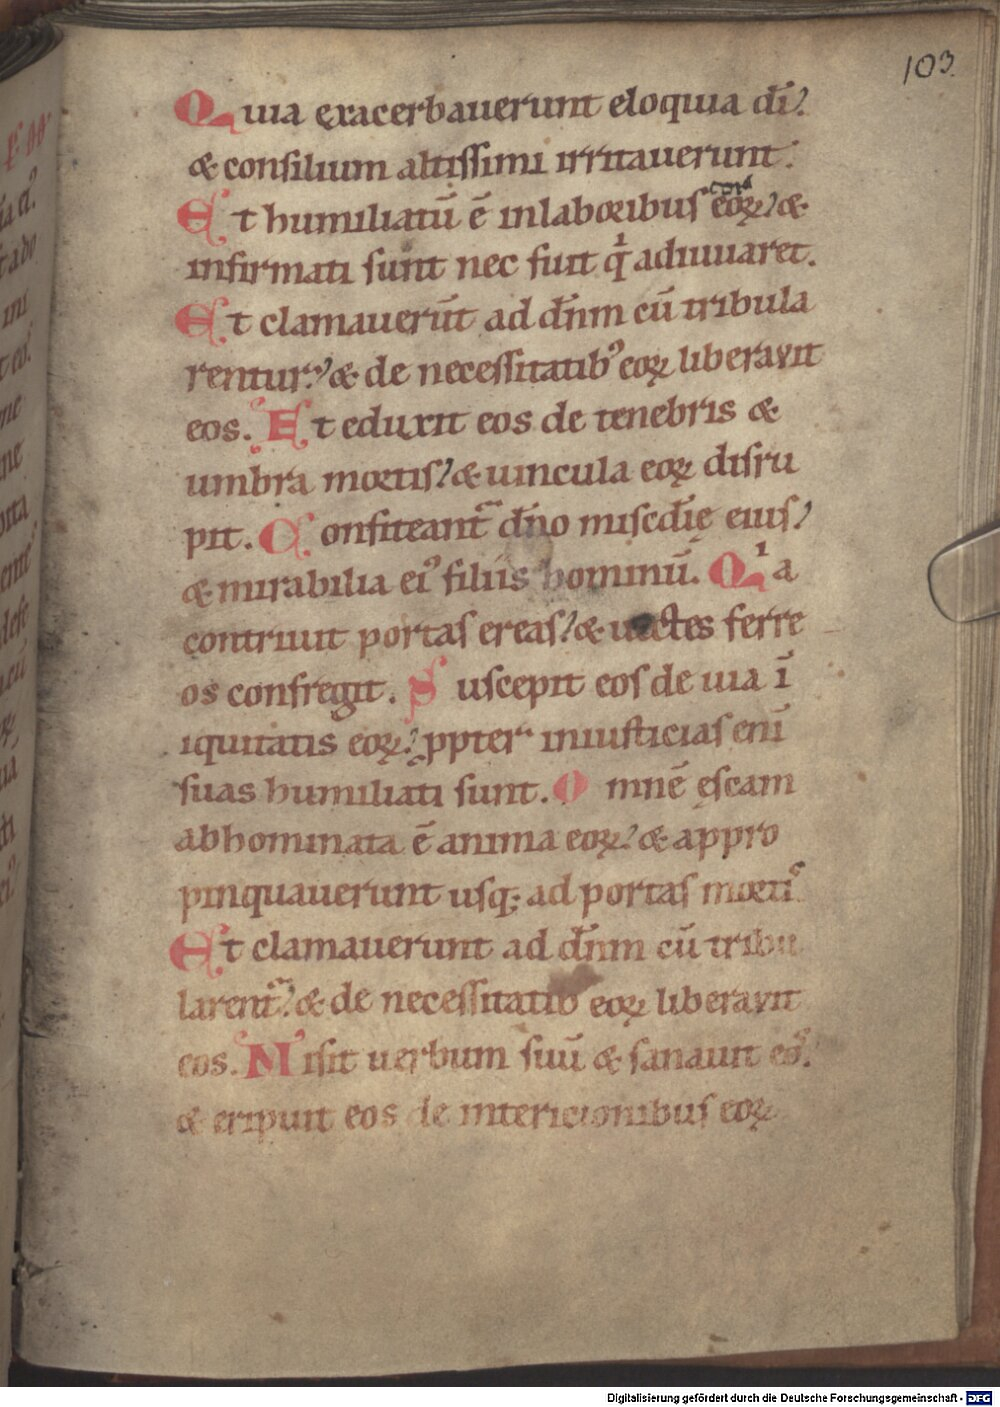 103
Quia exacerbauerunt eloquia dī
& consilium altissimi irritauerunt.
Et humiliatū ē in laboribus cor eoꝝ &
infirmati sunt nec fuit qͥ adiuuaret.
Et clamauerūt ad dn̄m cū tribula
rentur. & de necessitatibꝰ eoꝝ liberavit
eos. Et eduxit eos de tenebris &
umbra mortis & uincula eoꝝ disru
pit. Confiteant᷑ dn̄o miscd̄ię eius
& mirabilia eiꝰ filiis hominū. Qͥa
contriuit portas ereas & uectes ferre
os confregit. Suscepit eos de uia ī
iquitatis eoꝝ ꝓpter iniusticias enī
suas humiliati sunt. Omnē ęscam
abhominata ē anima eoꝝ & appro
pinquauerunt usq; ad portas mortis
Et clamauerunt ad dn̄m cū tribu
larent᷑ & de necessitatib eoꝝ liberavit
eos. Misit uerbum suū & sanauit eos.
& eripuit eos de intericionibus eoꝝ
Digitalisierung gefördert durch die Deutsche Forschungsgemeinschaft - DFG